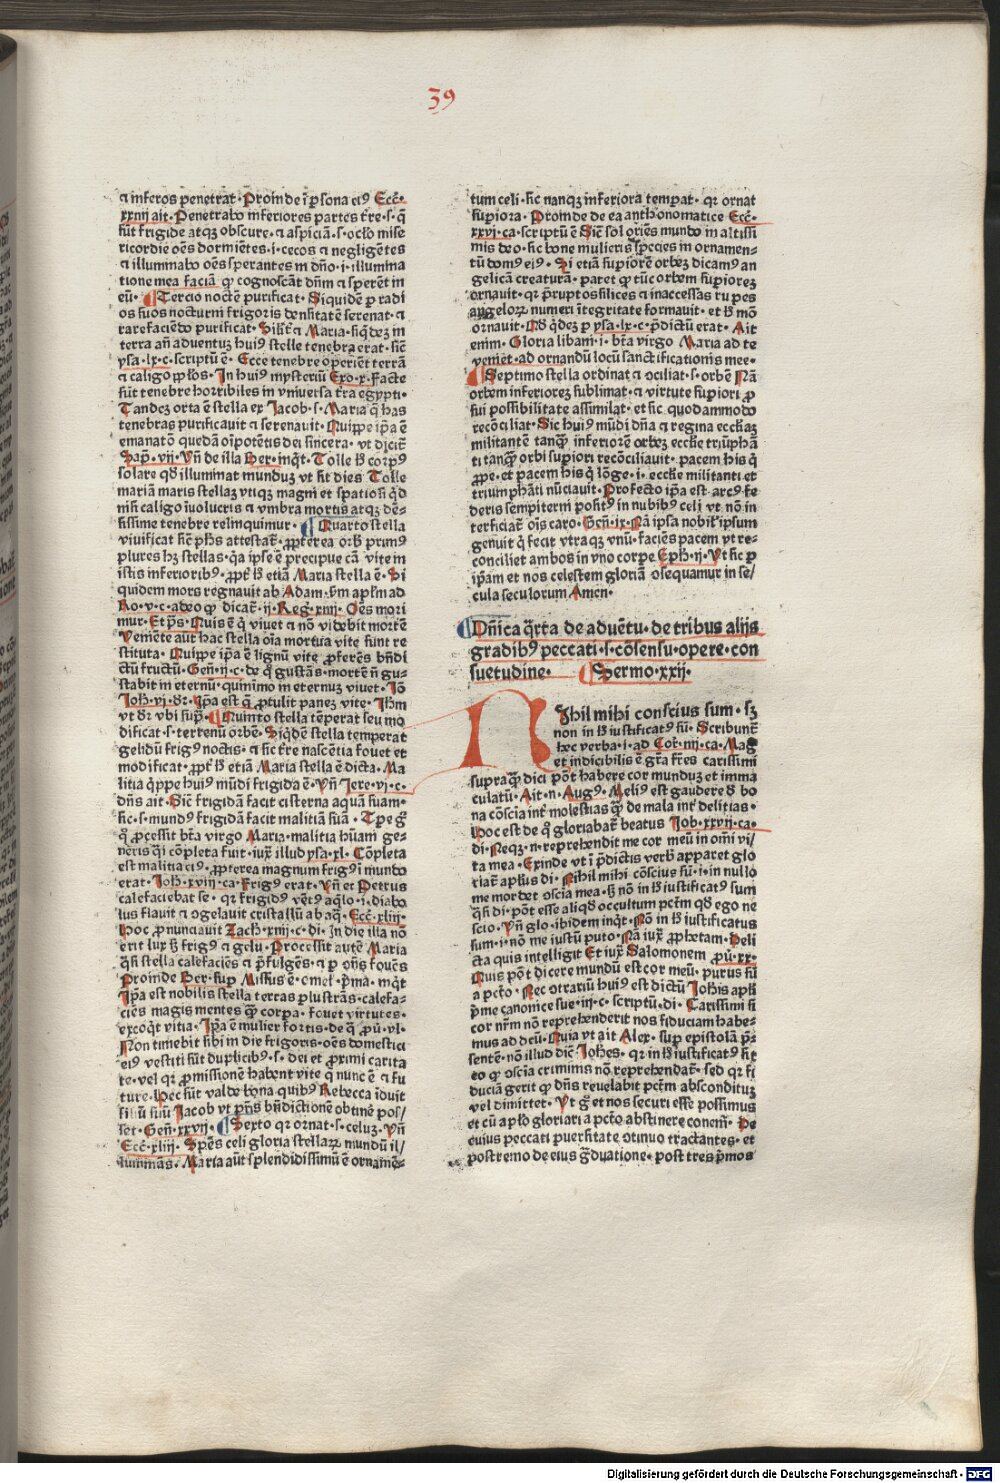 39
⁊ inferos penetrat. Proinde ī ꝑsona eiꝰ Ecc̄.
xxiiij ait. Penetrabo inferiores partes t̄re. s. q̄
sūt frigide atqꝫ obscure. ⁊ aspiciā. s. oc̄lo mise
ricordie oēs dormiētes. i. cecos ⁊ negligētes
⁊ illuminabo oēs sperantes in dn̄o. i. illumina
tione mea faciā ꝙ cognoscāt dn̄m ⁊ sperēt in
eū. Tercio noctē purificat. Siquidē ꝑ radi
os suos nocturni frigoris dēsitatē serenat. ⁊
rarefaciēdo purificat. Silr̄ ⁊ Maria. siq̄dez in
terra an̄ aduentuz huiꝰ stelle tenebra erat. sic̄
ysa. lx. c. scriptū ē. Ecce tenebre operiēnt terrā
⁊ caligo pp̄los. In huiꝰ mysteriū Exo. x. Facte
sūt tenebre horribiles in vniuersa t̄ra egypti.
Tandez orta ē stella ex Jacob. s. Maria q̄ has
tenebras purificauit ⁊ serenauit. Quippe ip̄a ē
emanatō quedā oīpotētis dei sincera. vt dicit̄
Sap̄. vij. Vn̄ de illa Ber. inq̄t. Tolle h̄ corpꝰ
solare qd̄ illuminat munduz vt fit dies Tolle
mariā maris stellaz vtiqꝫ magni et spatiosi q̄d
nisi caligo īuolucris ⁊ vmbra mortis atqꝫ dē-
sissime tenebre relinquimur. Quarto stella
viuificat sic̄ ph̄s attestat̄. ꝓpterea orb̄ primꝰ
plures hꝫ stellas. q̄a ipse ē precipue cā vite in
istis inferioribꝰ. ꝓpt̄ h̄ etiā Maria stella ē. Si
quidem mors regnauit ab Adam. scd̄m apl̄m ad
Ro. v. c. adeo ꝙ dicat̄. ij. Reg. xiiij. Oēs mori
mur. Et p̄s. Quis ē q̄ viuet ⁊ nō videbit mortē
Veniēte aut̄ hac stella oīa mortua vite sunt re
stituta. Quippe ip̄a ē lignū vite ꝓferēs bn̄di
ctū fructū. Gen̄. ij. c. de q̄ gustās. mortē n̄ gu-
stabit in eternū. quinimo in eternuz viuet. Iō
Joh. vj. dr̄. Ip̄a est q̄ ꝓtulit panez vite. Ihm̄
vt dr̄ vbi sup̄. Quinto stella tēperat seu mo
dificat. s. terrenū orbē. Siq̄dē stella temperat
gelidū frigꝰ noctis. ⁊ sic t̄re nascētia fouet et
modificat. ꝓpt̄ h̄ etiā Maria stella ē dicta. Ma
litia q̄ppe huiꝰ mūdi frigida ē. Vn̄ Jere. vj. c.
dn̄s ait. Sic̄ frigidā facit cisterna aquā suam.
sic. s. mundꝰ frigidā facit malitiā suā. Tp̄e gͦ
q̄ ꝓcessit bt̄a virgo Maria. malitia hūani ge-
neris q̄si cōpleta fuit. iux̄ illud ysa. xl. Cōpleta
est malitia eiꝰ. ꝓpterea magnum frigꝰ ī mundo
erat. Joh̄. xviij. ca. Frigꝰ erat. Vn̄ et Petrus
calefaciebat se. qr frigidꝰ vētꝰ aq̄lo. i. diabo
lus flauit ⁊ ꝯgelauit cristallū ab aq̄. Ecc̄. xliij.
Hoc ꝓnunciauit Zach. xiiij. c. di. In die illa nō
erit lux sꝫ frigꝰ ⁊ gelu. Processit autē Maria
q̄si stella calefaciēs ⁊ p̄fulgēs. ⁊ ꝑ ꝯn̄s fouēs
Proinde Ber. sup̄ Missus ē. omel̄. p̄ma. inq̄t
Ip̄a est nobilis stella terras ꝑlustrās. calefa-
ciēs magis mentes q̄ꝫ corpa. fouet virtutes.
excoq̄t vitia. Ip̄a ē mulier fortis. de q̄ ꝓū. vl.
Non timebit sibi in die frigoris. oēs domestici
eiꝰ vestiti sūt duplicibꝰ. s. dei et ꝓximi carita
te. vel qr ꝓmissionē habent vite q̄ nunc ē ⁊ fu
ture. Hec sūt valde bona quibꝰ Rebecca īduit
filiū suū Jacob vt p̄ris bn̄dictionē obtinē pos/
set. Gen̄. xxvij. Sexto qr ornat. s. celuz. Vn̄
Ecc̄. xliij. Spēs celi gloria stellarꝫ mundū il/
luminās. Maria aūt splendidissimū ē ornamē-
tum celi. sic nanqꝫ inferiora tempat. qr ornat
supiora. Proinde de ea anthonomatice Ecc̄.
xxvj. ca. scriptū ē Sic̄ sol oriēs mundo in altissi
mis deo. sic bone mulieris species in ornamen-
tū domꝰ eiꝰ. Si etiā supiorē orbez dicamꝰ an
gelicā creaturā. paret ꝙ tūc orbem supiorez
ornauit. qr p̄ruptos silices ⁊ inaccessas rupes
angelorꝫ numeri ītegritate formauit. et h̄ mō
ornauit. Qd̄ q̄dez ꝑ ysa. lx. c. p̄dictū erat. Ait
enim. Gloria libani. i. bt̄a virgo Maria ad te
veniet. ad ornandū locū sanctificationis mee.
Septimo stella ordinat ⁊ ꝯciliat. s. orbē Nā
orbem inferiorez sublimat. ⁊ virtute supiori ꝓ
sui possibilitate assimilat. et sic quodammodo
recōciliat. Sic huiꝰ mūdi dn̄a ⁊ regina eccl̄iaꝫ
militantē tanq̄ꝫ inferiorē orbez eccl̄ie triūphā
ti tanq̄ꝫ orbi supiori recōciliauit. pacem his q̄
ꝓpe. et pacem his q̄ lōge. i. eccl̄ie militanti et
triumphāti nūciauit. Profecto ip̄a est arcꝰ fe
deris sempiterni positꝰ in nubibꝰ celi vt nō in
terficiat̄ oīs caro. Gen̄. ix. Nā ipsa nobis ipsum
genuit q̄ fecit vtraqꝫ vnū. faciēs pacem vt re-
conciliet ambos in vno corpe Eph. ij. Vt sic ꝑ
ip̄am et nos celestem gloriā ꝯsequamur in se/
cula seculorum Amen.
Dn̄ica q̄rta de aduētu. de tribus alijs
gradibꝰ peccati. s. cōsensu. opere. con
suetudine. Sermo. xxij.
Nihil mihi conscius sum. sꝫ
non in h̄ iustificatꝰ sū. Scribunt̄
hec verba. i. ad Cor̄. iiij. ca. Mag
et indicibilis ē gr̄a fr̄es carissimi
supra q̄ꝫ dici pōt habere cor munduz et imma
culatū. Ait. n. Augꝰ. Meliꝰ est gaudere d̄ bo
na cōscia int̄ molestias q̄ꝫ de mala int̄ delitias.
Hoc est de q̄ gloriabat̄ beatus Job. xxvij. ca.
di. Neqꝫ. n. reprehendit me cor meū in om̄i vi/
ta mea. Exinde vt ī p̄dictis verb̄ apparet glo
riat̄ apl̄us di. Nihil mihi cōscius sū. i. in nullo
me mordet ꝯscia mea. sꝫ nō in h̄ iustificatꝰ sum
q̄si di. pōt esse aliqd̄ occultum pctm̄ qd̄ ego ne
scio. Vn̄ glo. ibidem inq̄t. Nō in h̄ iustificatus
sum. i. nō me iustū puto. Nā iux̄ ꝓphetam. Deli
cta quis intelligit Et iux̄ Salomonem ꝓū. xx.
Quis pōt dicere mundū est cor meū. purus sū
a pctō. Nec ꝯtrariū huiꝰ est dictū Joh̄is apl̄i
p̄me canonice sue. iij. c. scriptū. di. Carissimi si
cor nr̄m nō reprehenderit nos fiduciam habe-
mus ad deū. Quia vt ait Alex. sup̄ epistolā p̄-
sentē. nō illud dic̄ Joh̄es. qr in h̄ iustificatꝰ sit
eo ꝙ ꝯscia criminis nō reprehendat̄. sed qr fi
duciā gerit ꝙ dn̄s reuelabit pctm̄ abscondituz
vel dimittet. Vt gͦ et nos securi esse possimus
et cū aplo gloriari a pctō abstinere conem̄. De
cuius peccati ꝑuersitate ꝯtinuo tractantes. et
postremo de eius g̊duatione. post tres p̄mos
Digitalisierung gefördert durch die Deutsche Forschungsgemeinschaft - DFG